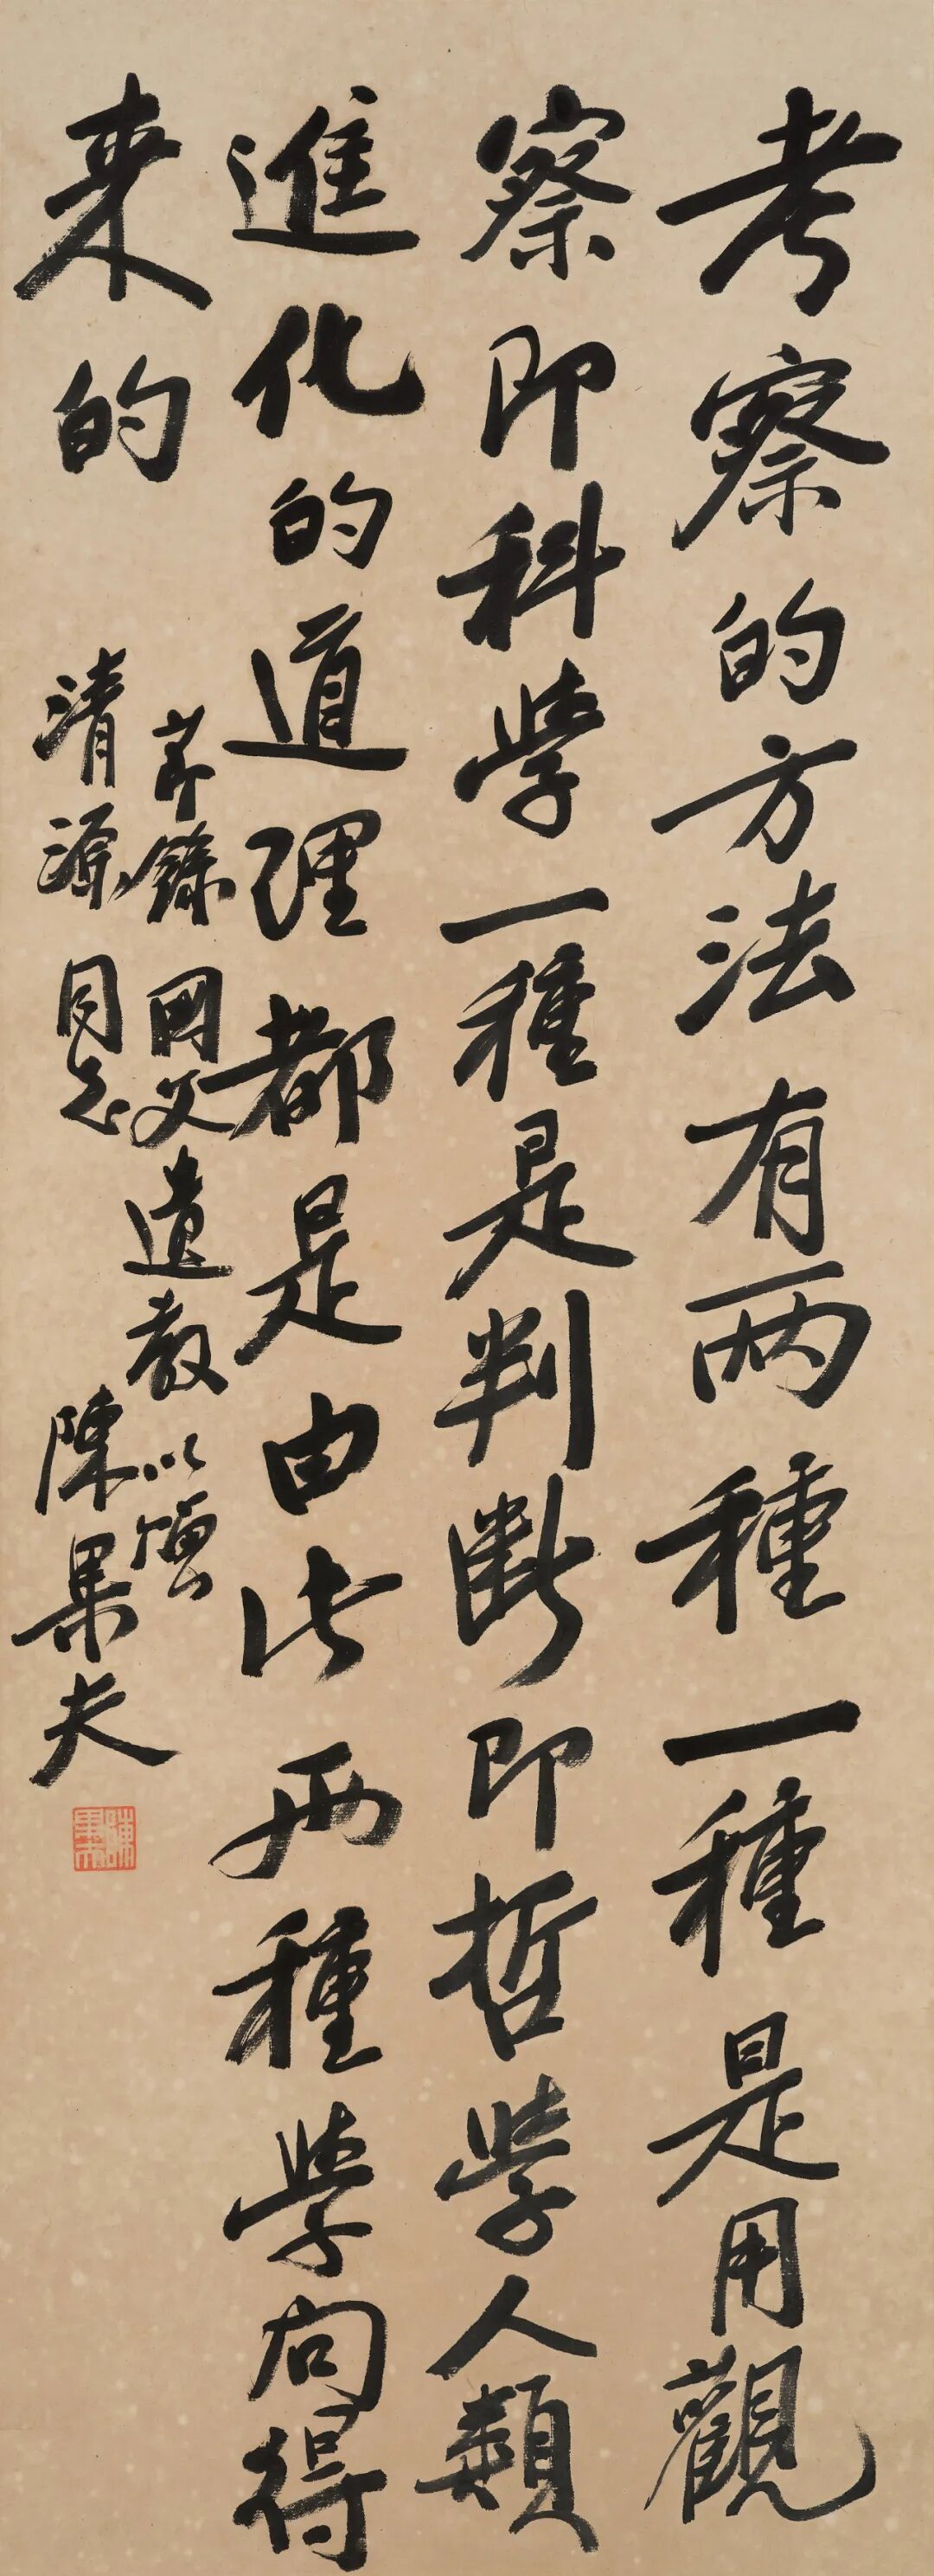 考察的方法有两種一種是用觀
察即科學一種是判斷即哲學人類
進化的道理都是由此兩種學問得
来的
節錄國父遺教以應
清源同志
陳果夫